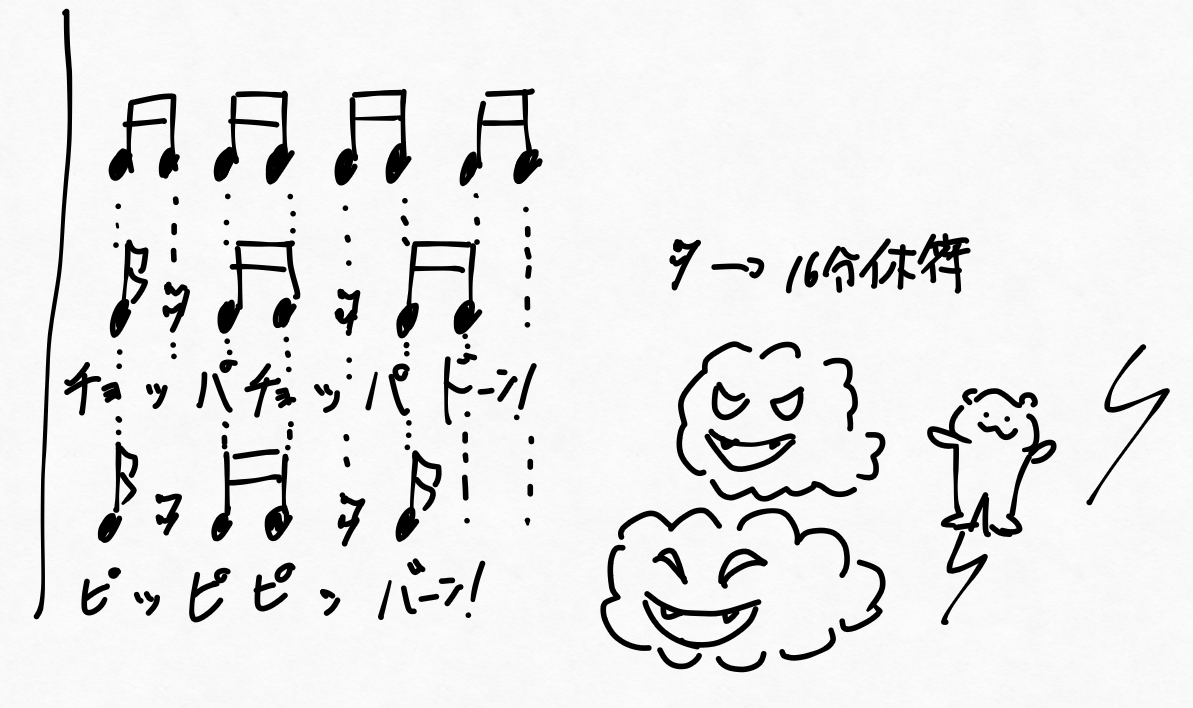 → 16分休符
チョッパチョッパドーン!
ピッピピッバーン!